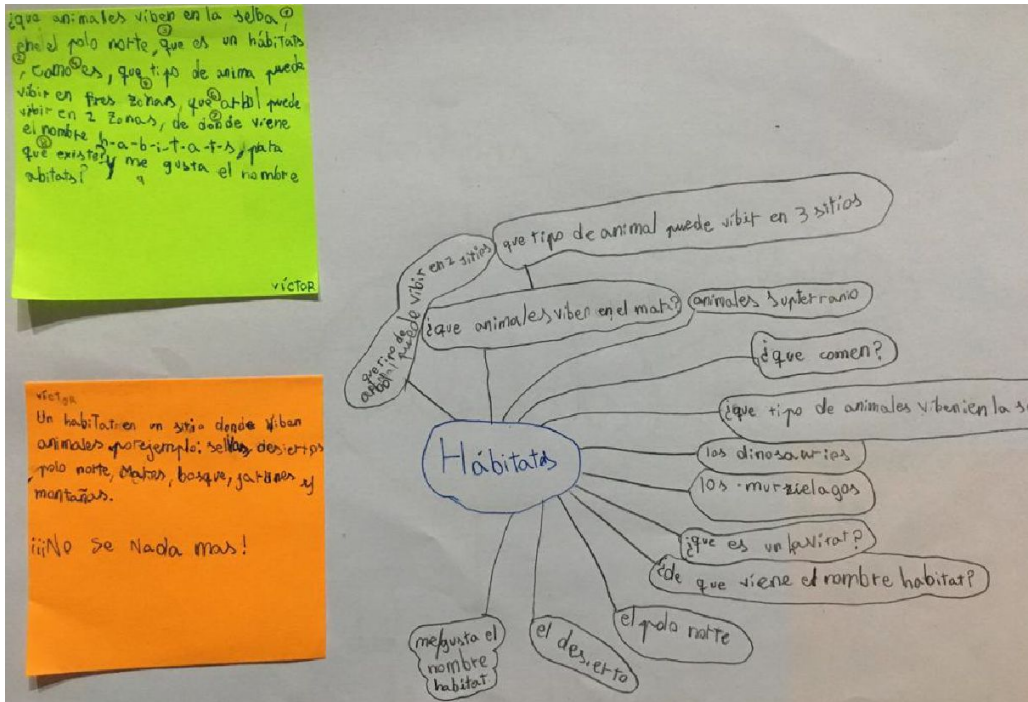 ¿que animales viben en la selba ①
ene el polo norte, ③ que es un hábitats
②, como ④ es, que ⑤ tipo de anima puede
vibir en tres zonas, que ⑥ arbol puede
vibir en 2 zonas, de donde ⑦ viene
el nombre h-a-b-i-t-a-t-s, para
que ⑧ existe y me gusta el nombre
abitats?
VÍCTOR
VÍCTOR
Un habitat en un sitio donde viben
animales porejemplo: selvas desiertos
polo norte, Mares, bosque, jardines y
montañas.
¡¡¡No Se Nada mas!
Hábitats
que tipo de arbol puede vibir en 2 sitios
que tipo de animal puede vibir en 3 sitios
¿que animales viben en el mar?
animales supterranio
¿que comen?
¿que tipo de animales viben en la s
los dinosaurios
los murzielagos
¿que es un havitat?
¿de que viene el nombre habitat?
el polo norte
el desierto
me gusta el
nombre
habitat